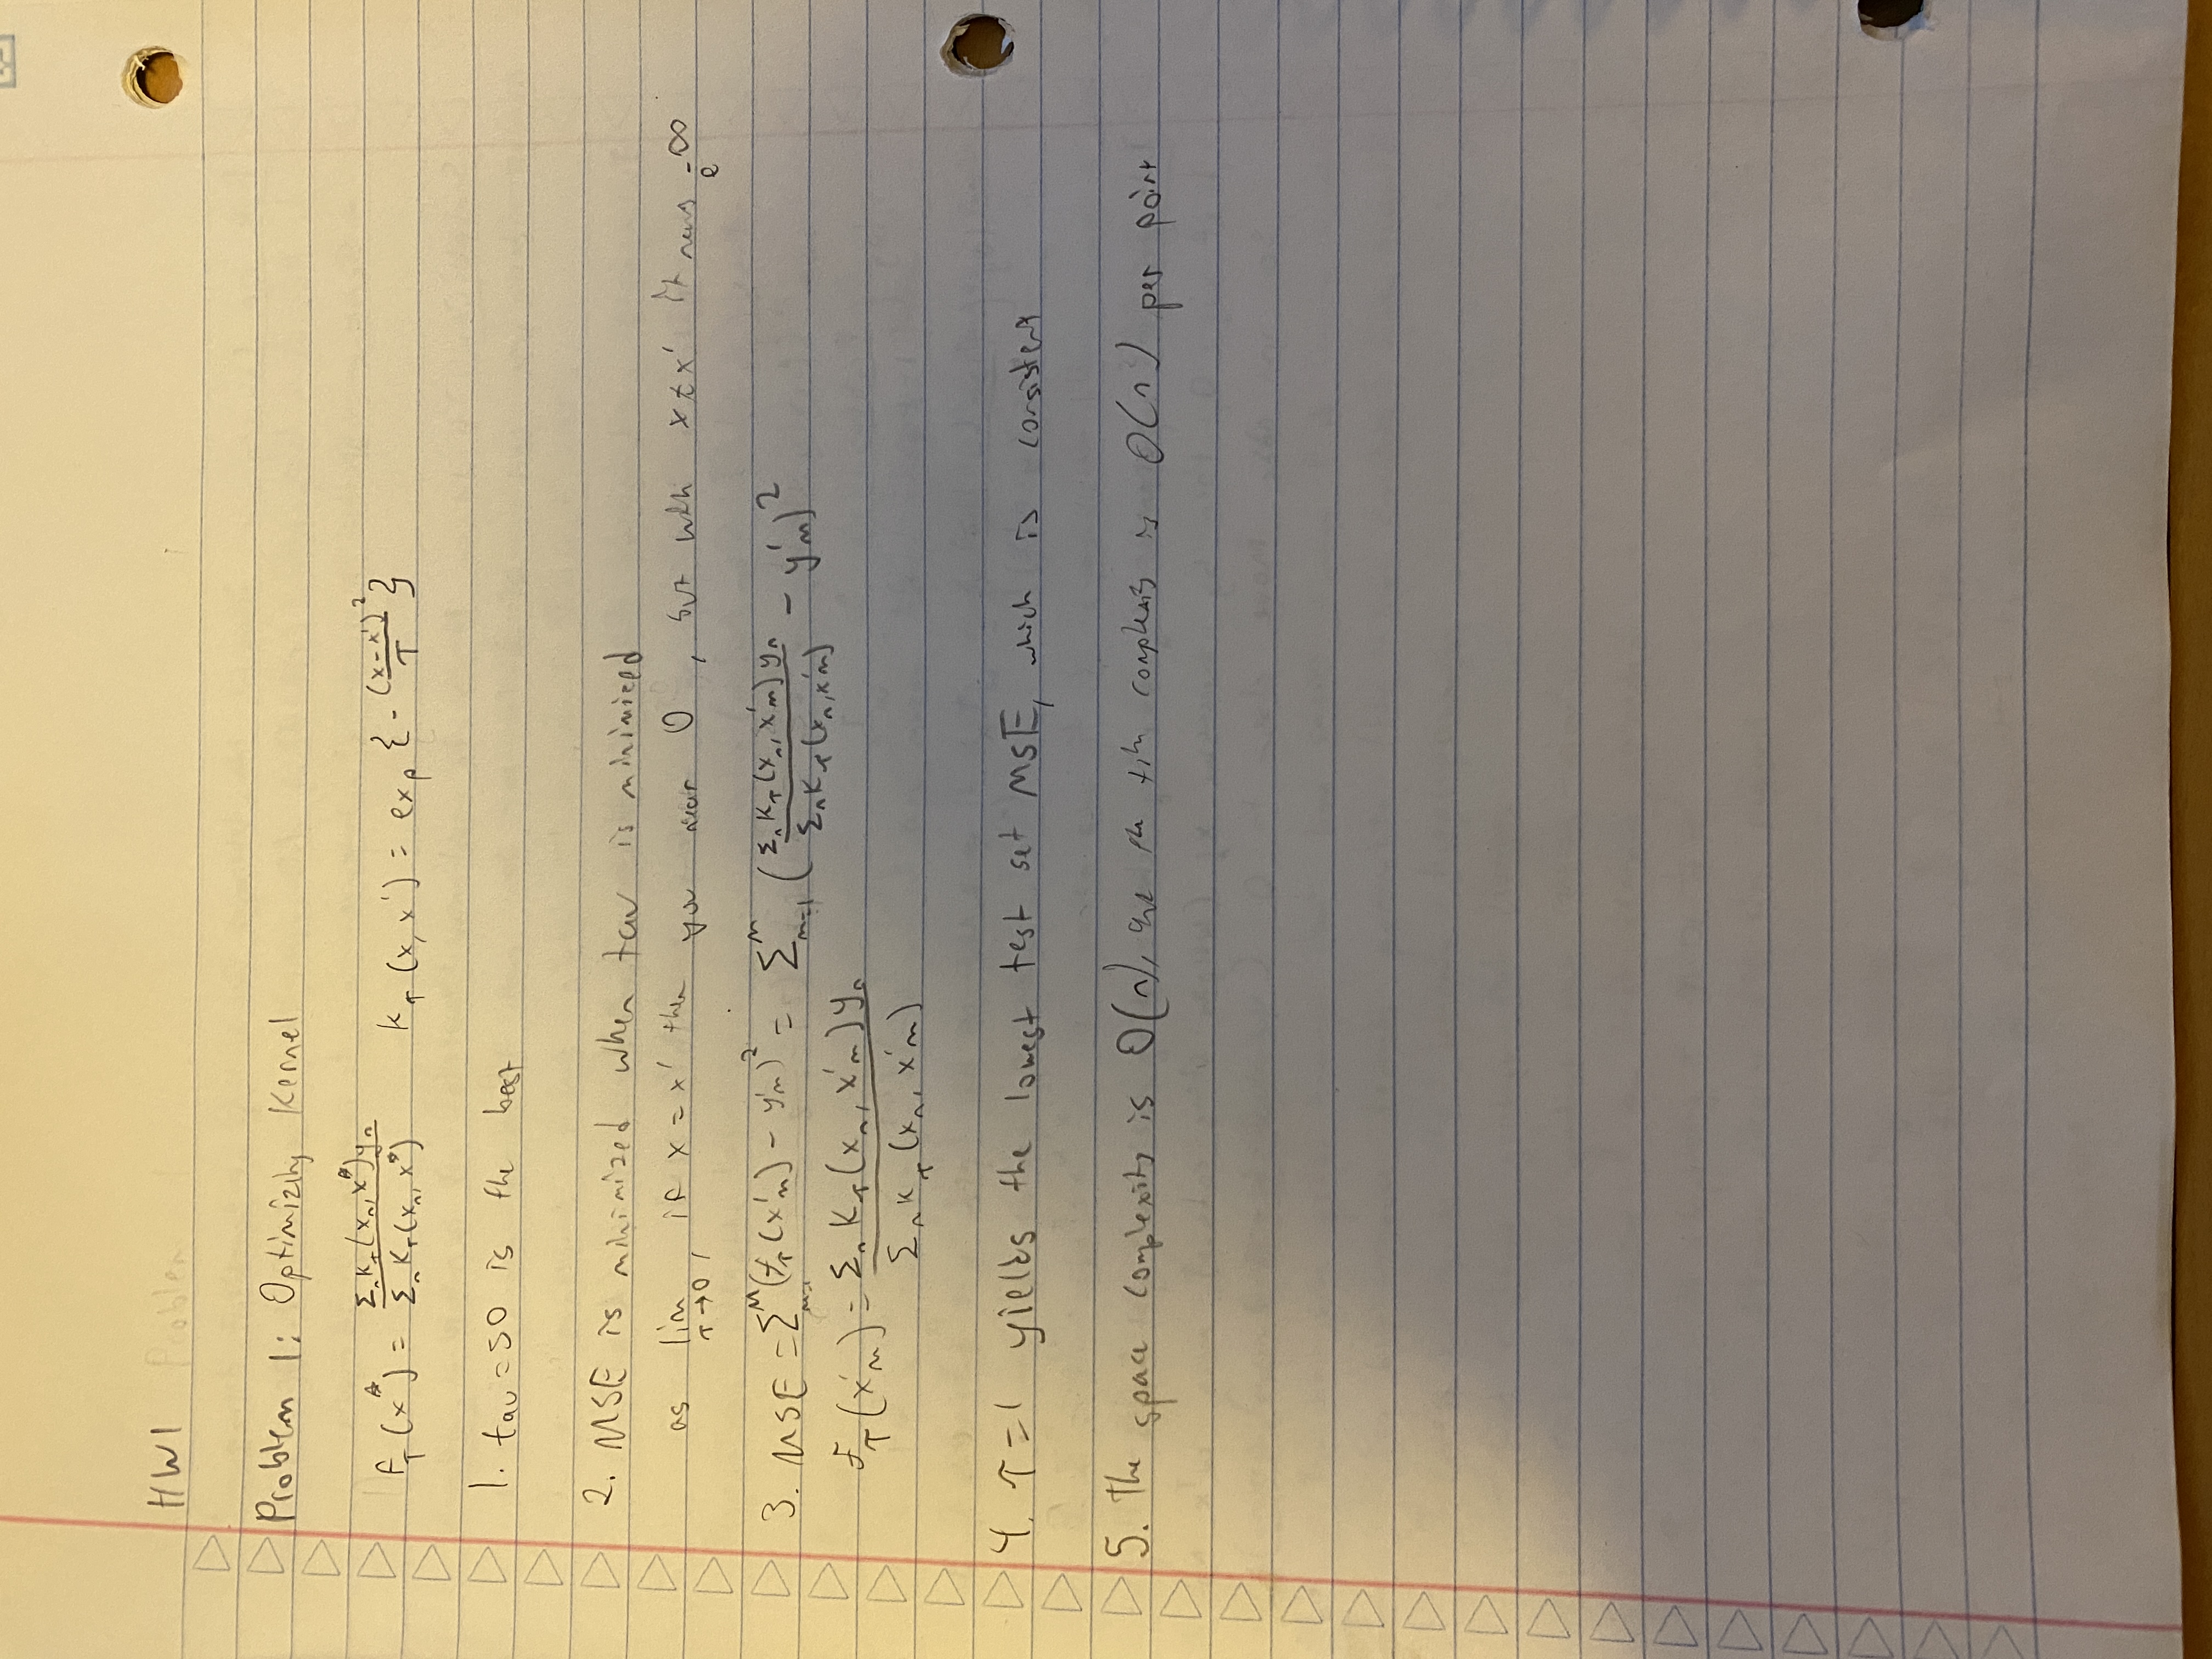 HW1
Problem 1: Optimizing Kernel
f_τ(x*) = Σ_n K_τ(x_n, x*) y_n / Σ_n K_τ(x_n, x*)    K_τ(x, x') = exp {- (x-x')² / τ}
1. tau = 50 is the best
2. MSE is minimized when tau is minimized
as lim τ→0, if x = x' then you near 0, but with x ≠ x' it nears e^-∞
3. MSE = Σ^M_m=1 (f_τ(x'm) - y'm)² = Σ^M_m=1 (Σ_n K_τ(x_n, x'm) y_n / Σ_n K_τ(x_n, x'm) - y'm)²
f_τ(x'm) = Σ_n K_τ(x_n, x'm) y_n / Σ_n K_τ(x_n, x'm)
4. τ=1 yields the lowest test set MSE, which is consistent
5. The space complexity is O(n), and the time complexity is O(n) per point